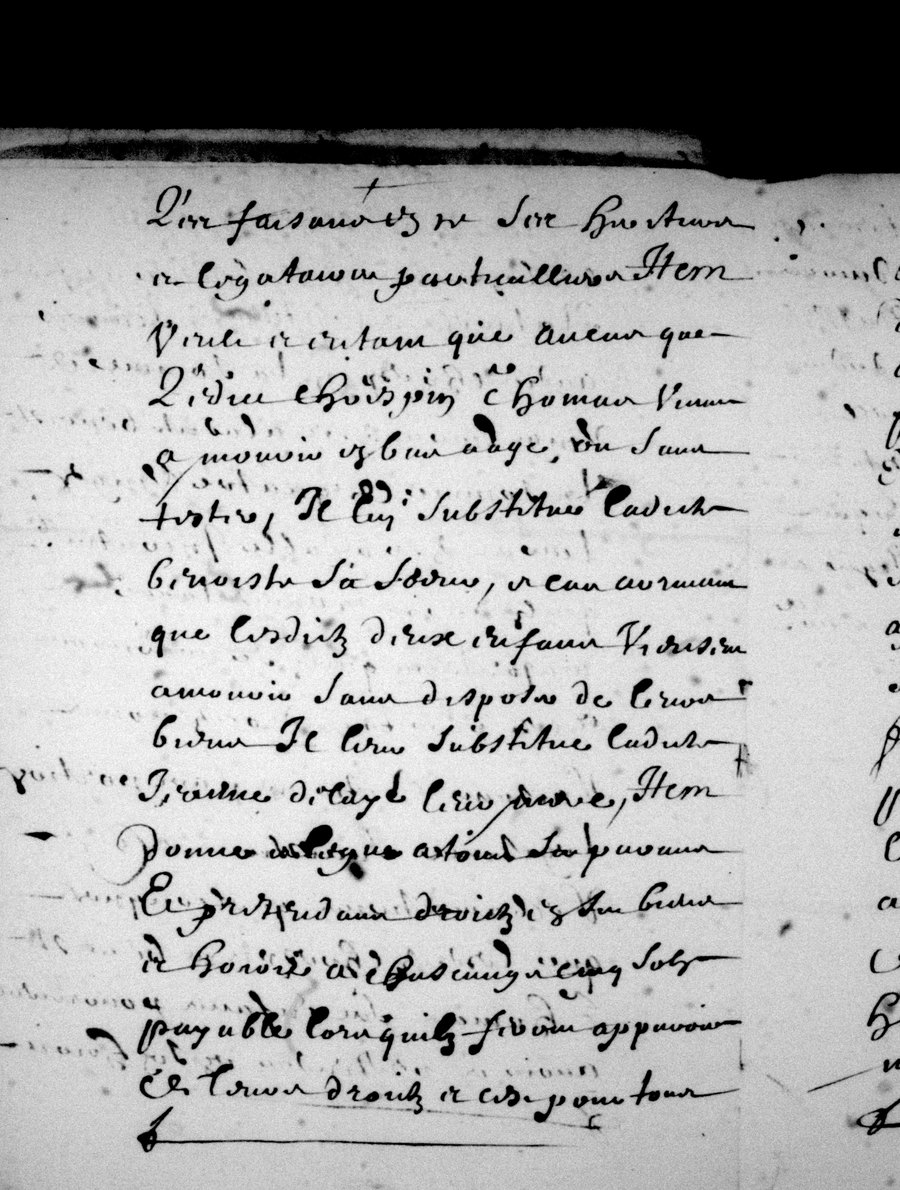 Les faisant en ce ses heritiers
et legataires particulliers Item
Veult et entant que aucas que
Ledict Thomas Vienne
a mourir en bas aage, ou sans
tester, Il luy substitue ladicte
benoiste sa soeur, et cas advenant
que lesdictz deux enfans Viensent
a mourir sans disposer de leurs
biens Il leur substitue ladicte
leur mere, Item
donne et legue a tous ses parans
Et pretendans droictz en ses biens
et hoirie a chascung cinq solz
payable lors quilz feront apparoir
de leurs droictz et ce pour tous